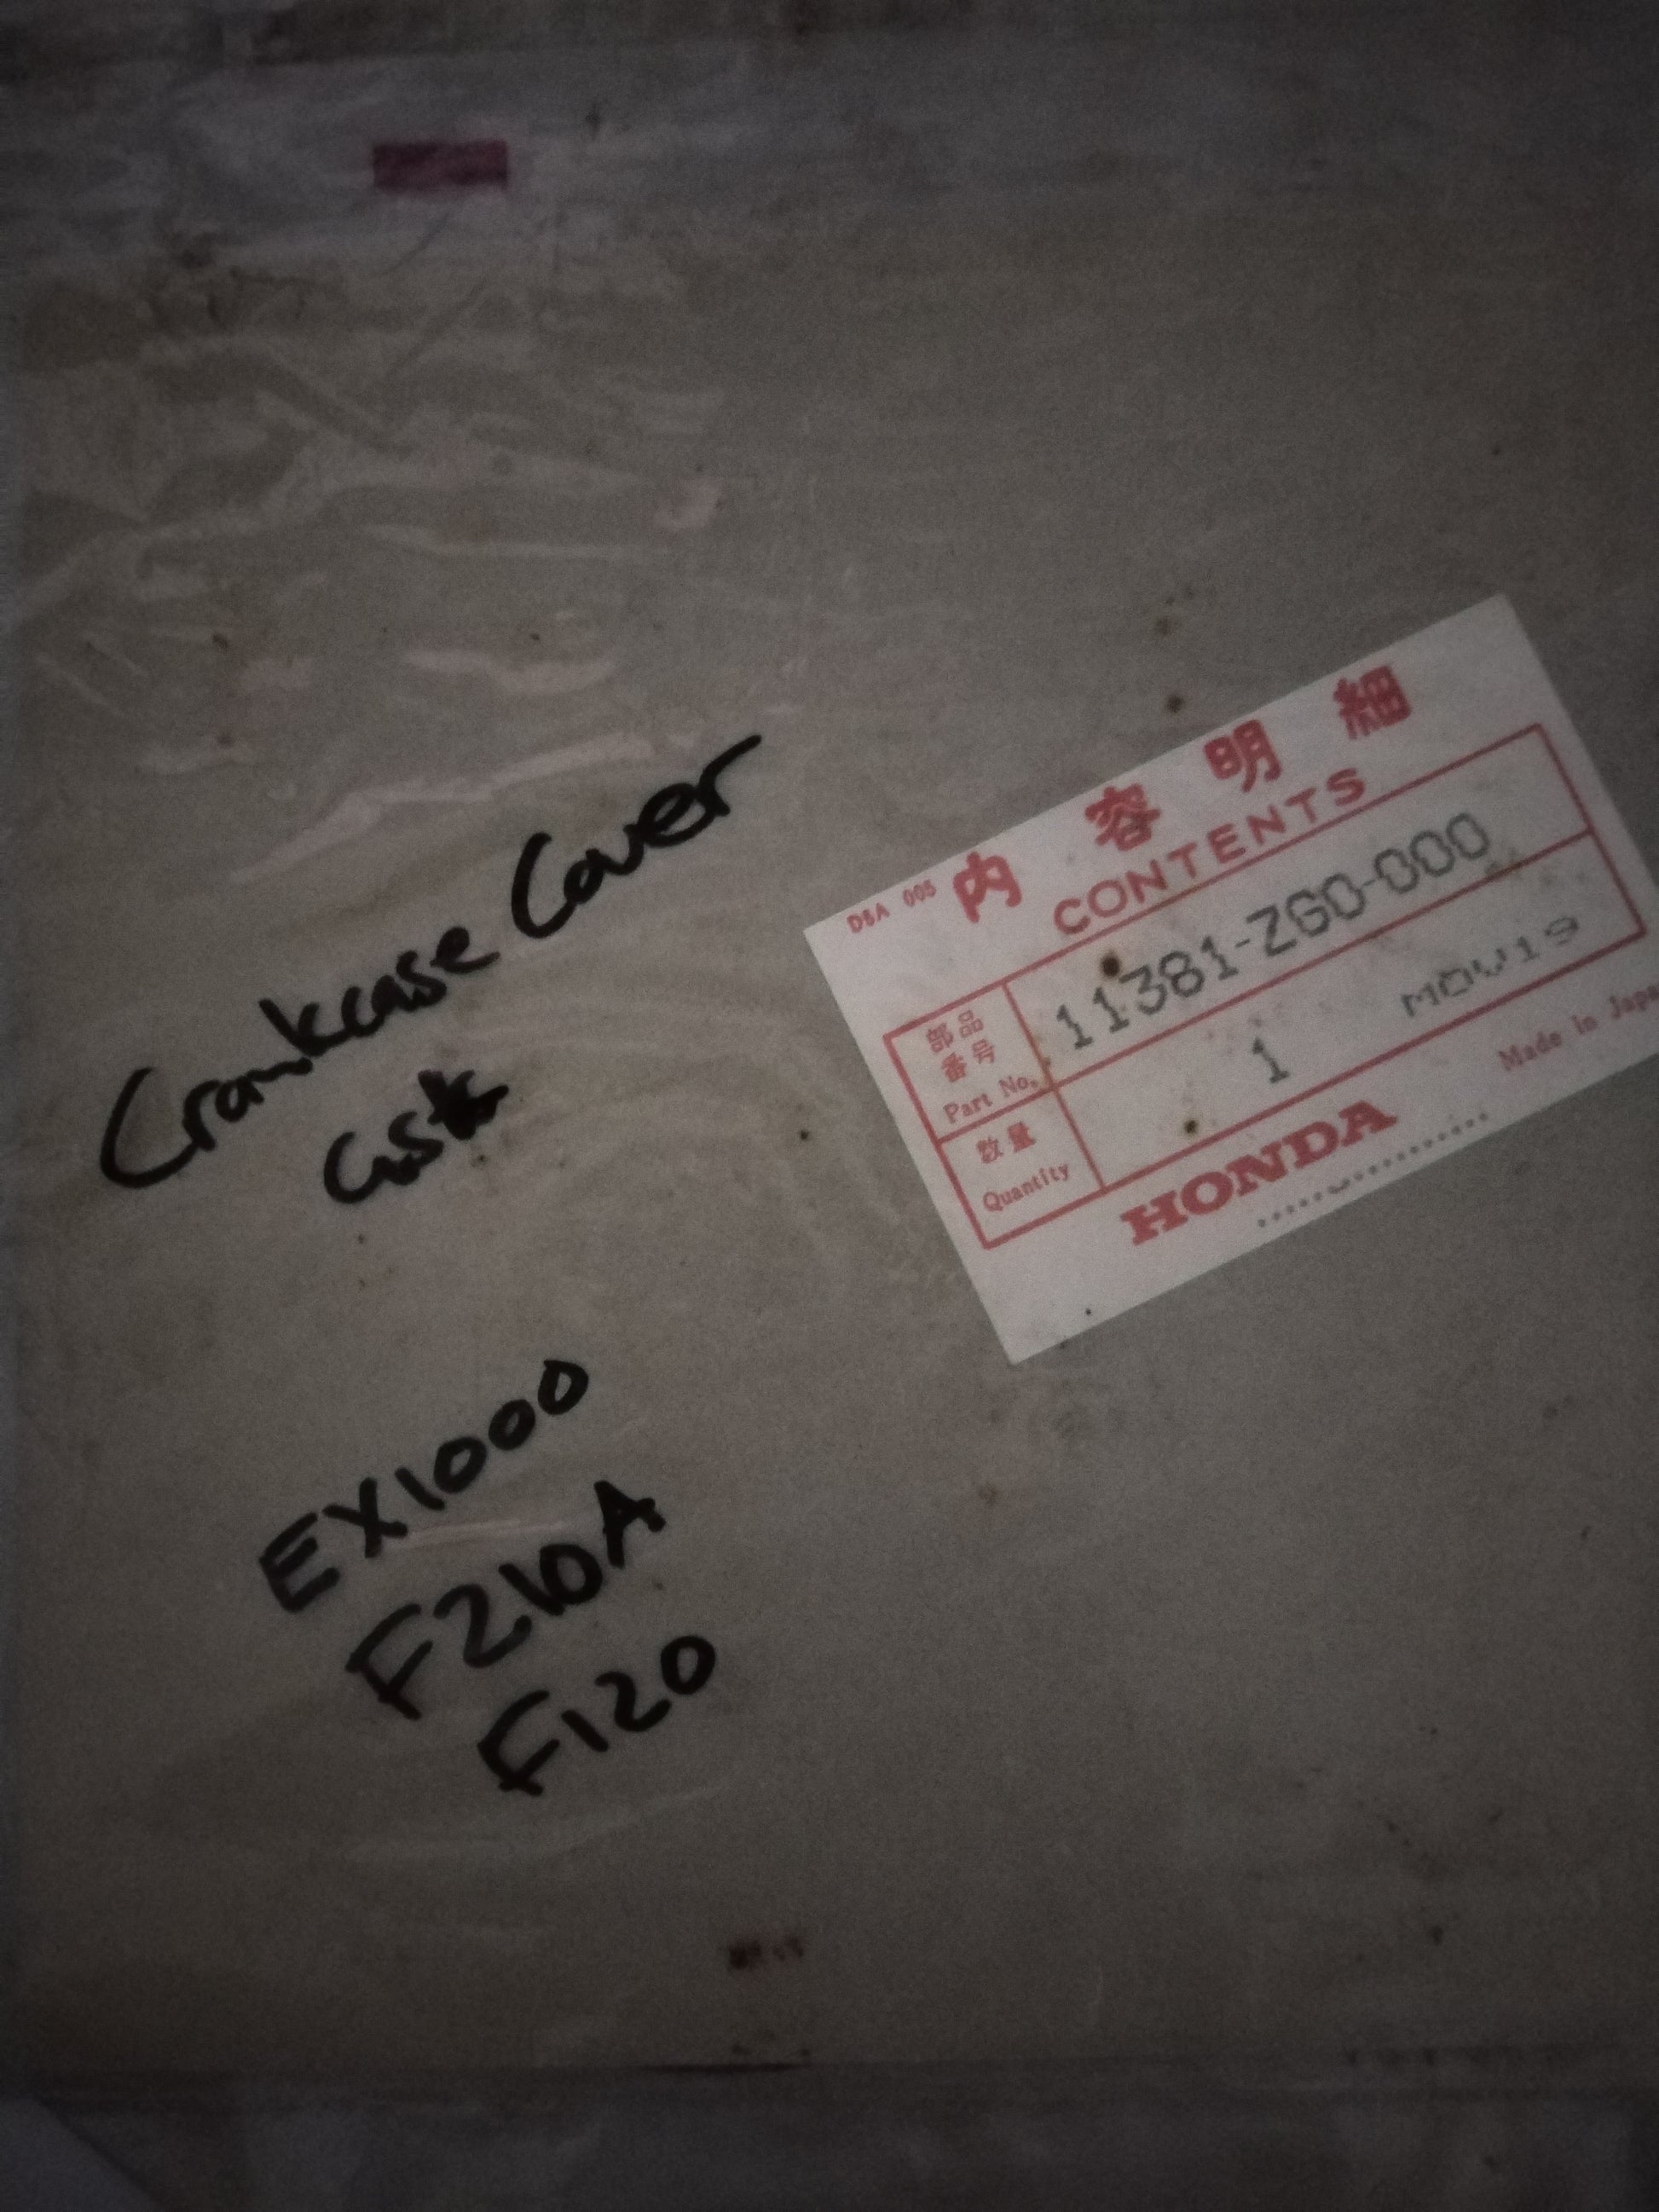 Crankcase Cover
Gskt
EX1000
F210A
F120
DSA 005
内容明細
CONTENTS
部品番号
Part No.
11381-ZG0-000
数量
Quantity
1
HONDA